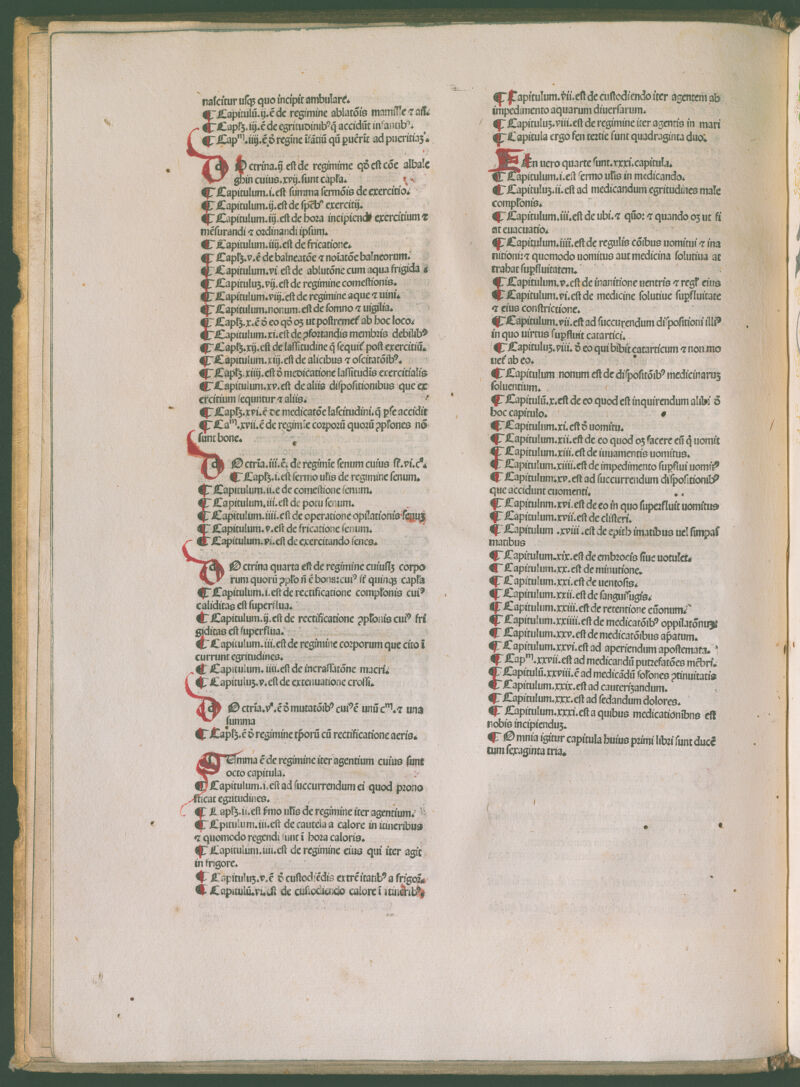 naſcitur uſqꝫ quo incipit ambulare.
¶ Capitulū.ij.ē de regimine ablatōis mamille ⁊ aſſ.
¶ Capſꝫ.iij.ē de egritudinibꝰ q̄ accidūt infantibꝰ.
¶ Capᵐ.iiij.ē ꝺ̄ regine īfātiū qū puēr̄it ad pueritiaꝫ.
D Octrina.ij eſt de regimine qō eſt cōe albale
ghin cuius.xvij.ſunt capl̄a.
¶ Capitulum.i.eſt ſumma ſermōis de exercitio.
¶ Capitulum.ij.eſt de ſpēbꝰ exercitij.
¶ Capitulum.iij.eſt de hora incipiendi exercitium ⁊
mēſurandi ⁊ ordinandi ipſum.
¶ Capitulum.iiij.eſt de fricatione.
¶ Capſꝫ.v.ē de balneatōe ⁊ noīatōe balneorum.
¶ Capitulum.vi eſt de ablutōne cum aqua frigida.
¶ Capituluꝫ.vij.eſt de regimine comeſtionis.
¶ Capitulum.viij.eſt de regimine aque ⁊ uini.
¶ Capitulum.nonum.eſt de ſomno ⁊ uigilia.
¶ Capſꝫ.x.ē ꝺ̄ eo qō oꝫ ut poſtremeṫ ab hoc loco.
¶ Capitulum.xi.eſt de ↄfortandis membris debilibꝰ
¶ Capſꝫ.xij.eſt de laſſitudine q̄ ſequiṫ poſt exercitiū.
¶ Capitulum.xiij.eſt de alicibus ⁊ oſcitatōibꝰ.
¶ Capſꝫ.xiiij.eſt ꝺ̄ medicatione laſſitudis exercitialis
¶ Capitulum.xv.eſt de aliis diſpoſitionibus que ex
ercitium ſequntur ⁊ aliis.
¶ Capſꝫ.xvi.ē de medicatōe laſcitudini.q̄ ꝑſe accidit
¶ Caᵐ.xvii.ē de regimīe corporū quorū ↄplones nō
ſunt bone.
D Octrīa.iii.ē. de regimīe ſenum cuius ſt̄.vi.cᵃ.
¶ Capſꝫ.i.eſt ſermo ul̄is de regimine ſenum.
¶ Capitulum.ii.e de comeſtione ſenum.
¶ Capitulum.iii.eſt de potu ſenum.
¶ Capitulum.iiii.eſt de operatione opilationis ſenuꝫ
¶ Capitulum.v.eſt de fricatione ſenum.
¶ Capitulum.vi.eſt de exercitando ſenes.
D Octrina quarta eſt de regimine cuiuſſꝫ corpo
rum quorū ↄplō n̄ ē bona:cuiꝰ ſt̄ quinqꝫ capl̄a
¶ Capitulum.i.eſt de rectificatione complōnis cuiꝰ
caliditas eſt ſuperflua.
¶ Capitulum.ij.eſt de rectificatione ↄplōnis cuiꝰ fri
giditas eſt ſuperflua.
¶ Capitulum.iii.eſt de regimine corporum que cito ī
currunt egritudines.
¶ Capitulum.iiii.eſt de incraſſatōne macri.
¶ Capituluꝫ.v.eſt de extenuatione croſſi.
D Octrīa.vᵃ.ē ꝺ̄ mutatōibꝰ cuiꝰē unū cᵐ.⁊ una
ſumma
¶ Capſꝫ.ē ꝺ̄ regimine tꝑorū cū rectificatione aeris.
S Umma ē de regimine iter agentium cuius ſunt
octo capitula.
¶ Capitulum.i.eſt ad ſuccurrendum ei quod prono
ſticat egritudines.
¶ Capſꝫ.ii.eſt ſ̄mo ul̄is de regimine iter agentium.
¶ Cpitulum.iii.eſt de cautela a calore in itineribus
⁊ quomodo regendi ſunt ī hora caloris.
¶ Capitulum.iiii.eſt de regimine eius qui iter agit
in frigore.
¶ Capituluꝫ.v.ē ꝺ̄ cuſtodiēdis extrēitatibꝰ a frigor̄.
¶ Capitulū.vi.eſt de cuſtodiendo calore ī itineribꝰ.
¶ Capitulum.vii.eſt de cuſtodiendo iter agentem ab
impedimento aquarum diuerſarum.
¶ Capituluꝫ.viii.eſt de regimine iter agentis in mari
¶ Capitula ergo fen tertie ſunt quadraginta duo.
F En uero quarte ſunt.xxxi.capitula.
¶ Capitulum.i.eſt ſermo ul̄is in medicando.
¶ Capituluꝫ.ii.eſt ad medicandum egritudines male
complonis.
¶ Capitulum.iii.eſt de ubi.⁊ quō: ⁊ quando oꝫ ut fi
at euacuatio.
¶ Capitulum.iiii.eſt de regulis cōibus uomitui ⁊ ina
nitioni:⁊ quomodo uomitus aut medicina ſolutiua at
trahat ſuꝑfluitatem.
¶ Capitulum.v.eſt de inanitione uentris ⁊ regl̄ eius
¶ Capitulum.vi.eſt de medicine ſolutiue ſuꝑfluitate
⁊ eius conſtrictione.
¶ Capitulum.vii.eſt ad ſuccurrendum diſpoſitioni illiꝰ
in quo uirtus ſuꝑfluit catartici.
¶ Capituluꝫ.viii. ꝺ̄ eo qui bibit catarticum ⁊ non mo
ueṫ ab eo.
¶ Capitulum nonum eſt de diſpoſitōibꝰ medicinaruꝫ
ſoluentium.
¶ Capitulū.x.eſt de eo quod eſt inquirendum alibi ꝺ̄
hoc capitulo.
¶ Capitulum.xi.eſt ꝺ̄ uomitu.
¶ Capitulum.xii.eſt de eo quod oꝫ facere eū q̄ uomit
¶ Capitulum.xiii.eſt de iuuamentis uomitus.
¶ Capitulum.xiiii.eſt de impedimento ſuꝑflui uomitꝰ
¶ Capitulum.xv.eſt ad ſuccurrendum diſpoſitionibꝰ
que accidunt euomenti.
¶ Capitulum.xvi.eſt de eo in quo ſuperfluit uomitus
¶ Capitulum.xvii.eſt de cliſteri.
¶ Capitulum .xviii .eſt de epith imatibus uel ſimpaſ
matibus
¶ Capitulum.xix.eſt de embrocis ſiue uotulet.
¶ Capitulum.xx.eſt de minutione.
¶ Capitulum.xxi.eſt de uentoſis.
¶ Capitulum.xxii.eſt de ſanguiſugis.
¶ Capitulum.xxiii.eſt de retentione cūonum.
¶ Capitulum.xxiiii.eſt de medicatōibꝰ oppilatōnuꝫ
¶ Capitulum.xxv.eſt de medicatōibus apatum.
¶ Capitulum.xxvi.eſt ad aperiendum apoſtemata.
¶ Capᵐ.xxvii.eſt ad medicandū putrefatōes mēbri.
¶ Capitulū.xxviii.ē ad medicādū ſolōnes ↄtinuitatis
¶ Capitulum.xxix.eſt ad cauterizandum.
¶ Capitulum.xxx.eſt ad ſedandum dolores.
¶ Capitulum.xxxi.eſt a quibus medicationibns eſt
nobis incipienduꝫ.
¶ Omnia igitur capitula huius primi libri ſunt ducē
tum ſexaginta tria.